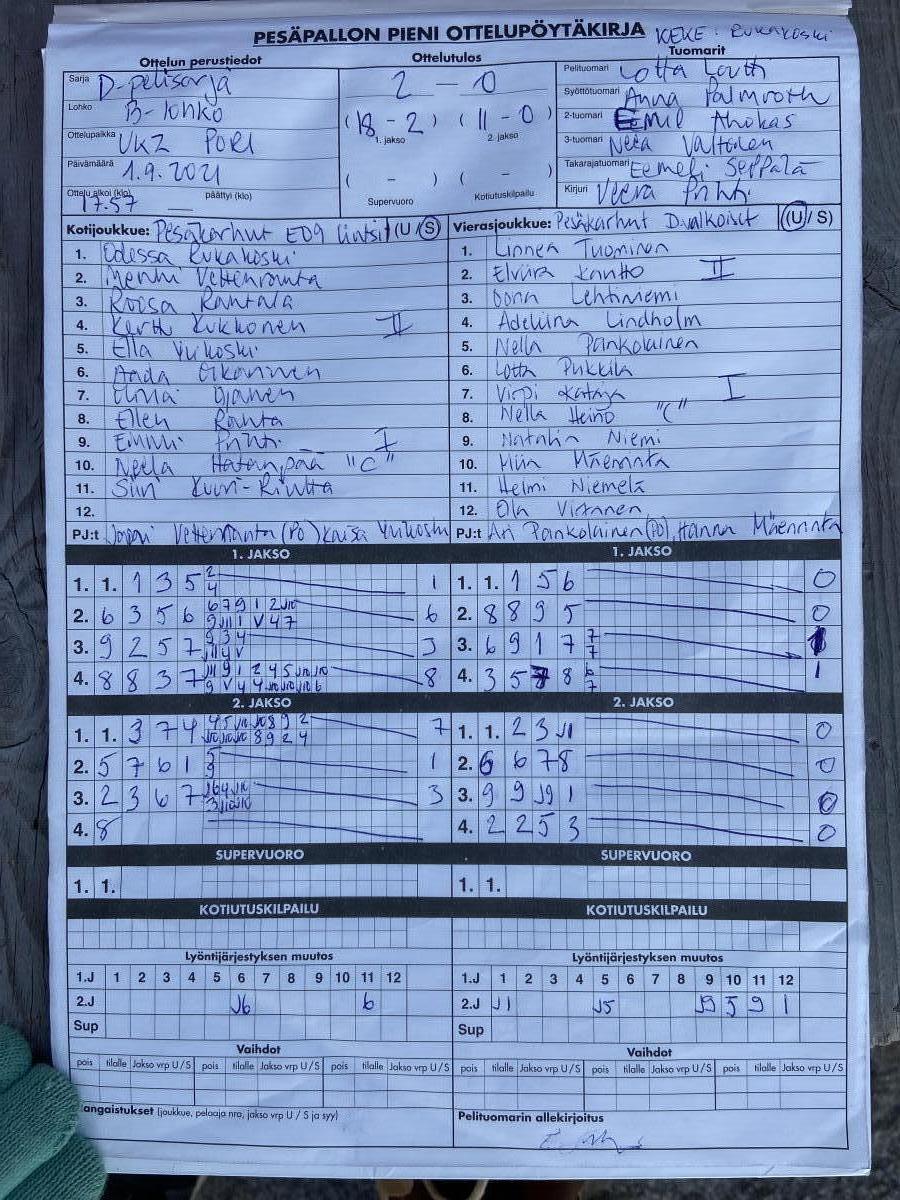 PESÄPALLON PIENI OTTELUPÖYTÄKIRJA KEKE: Rukakoski
Ottelun perustiedot
Sarja D-pelisarja
Lohko B-lohko
Ottelupaikka UKZ PORI
Päivämäärä 1.9.2021
Ottelu alkoi (klo) 17.57 päättyi (klo)
Ottelutulos
2 - 0
(18 - 2) (11 - 0)
1. jakso 2. jakso
( - ) ( - )
Supervuoro Kotiutuskilpailu
Tuomarit
Pelituomari Lotta
Syöttötuomari Anna Palmroth
2-tuomari Eemil Ahokas
3-tuomari Neea Valtonen
Takarajatuomari Eemeli Seppälä
Kirjuri Veera
Kotijoukkue: Pesäkarhut E09 (U / S)
1. Odessa Rukakoski
2. Vettenranta
3. Roosa Rantala
4. Kerttu Kukkonen II
5. Ella Yukoski
6. Aada Oikarinen
7. Ojanen
8. Ellen Ranta
9. I
10. Neela Hatanpää "C"
11. Siiri
12.
PJ:t Vettenranta (PÖ) Kaisa
Vierasjoukkue: Pesäkarhut D valkoiset (U / S)
1. Linnea Tuominen
2. Elviira Kantto II
3. Oona Lehtiniemi
4. Adeliina Lindholm
5. Nella Pankolainen
6. Lotta Pukkila
7. Virpi Kataja I
8. Nella Heino "C"
9. Natalia Niemi
10. Miia Mäenranta
11. Helmi Niemelä
12. Ola Virtanen
PJ:t Ari Pankolainen (PÖ), Hanna Mäenranta
1. JAKSO
1. 1. 1 3 5 2 4 1
2. 6 3 5 6 6
3. 9 2 5 7 3
4. 8 8 3 7 8
1. JAKSO
1. 1. 1 5 6 0
2. 8 8 9 5 0
3. 6 9 1 7 7 7 1
4. 3 5 8 6 7 1
2. JAKSO
1. 1. 3 7 4 7
2. 5 7 6 1 5 9 1
3. 2 3 6 7 3
4. 8
2. JAKSO
1. 1. 2 3 J1 0
2. 6 6 7 8 0
3. 9 9 J9 1 0
4. 2 2 5 3 0
SUPERVUORO
1. 1.
SUPERVUORO
1. 1.
KOTIUTUSKILPAILU
KOTIUTUSKILPAILU
Lyöntijärjestyksen muutos
1.J 1 2 3 4 5 6 7 8 9 10 11 12
2.J J6 6
Sup
Lyöntijärjestyksen muutos
1.J 1 2 3 4 5 6 7 8 9 10 11 12
2.J J1 J5 J9 5 9 1
Sup
Vaihdot
pois tilalle Jakso vrp U / S pois tilalle Jakso vrp U / S pois tilalle Jakso vrp U / S
Vaihdot
pois tilalle Jakso vrp U / S pois tilalle Jakso vrp U / S pois tilalle Jakso vrp U / S
angaistukset (joukkue, pelaaja nro, jakso vrp U / S ja syy)
Pelituomarin allekirjoitus